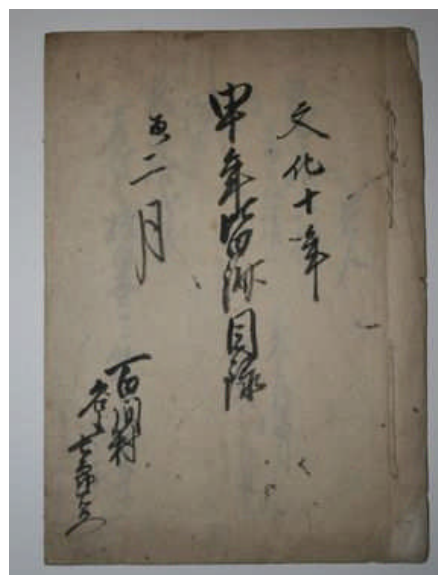 文化十年
申年皆済目録
酉二月
百間村
名主